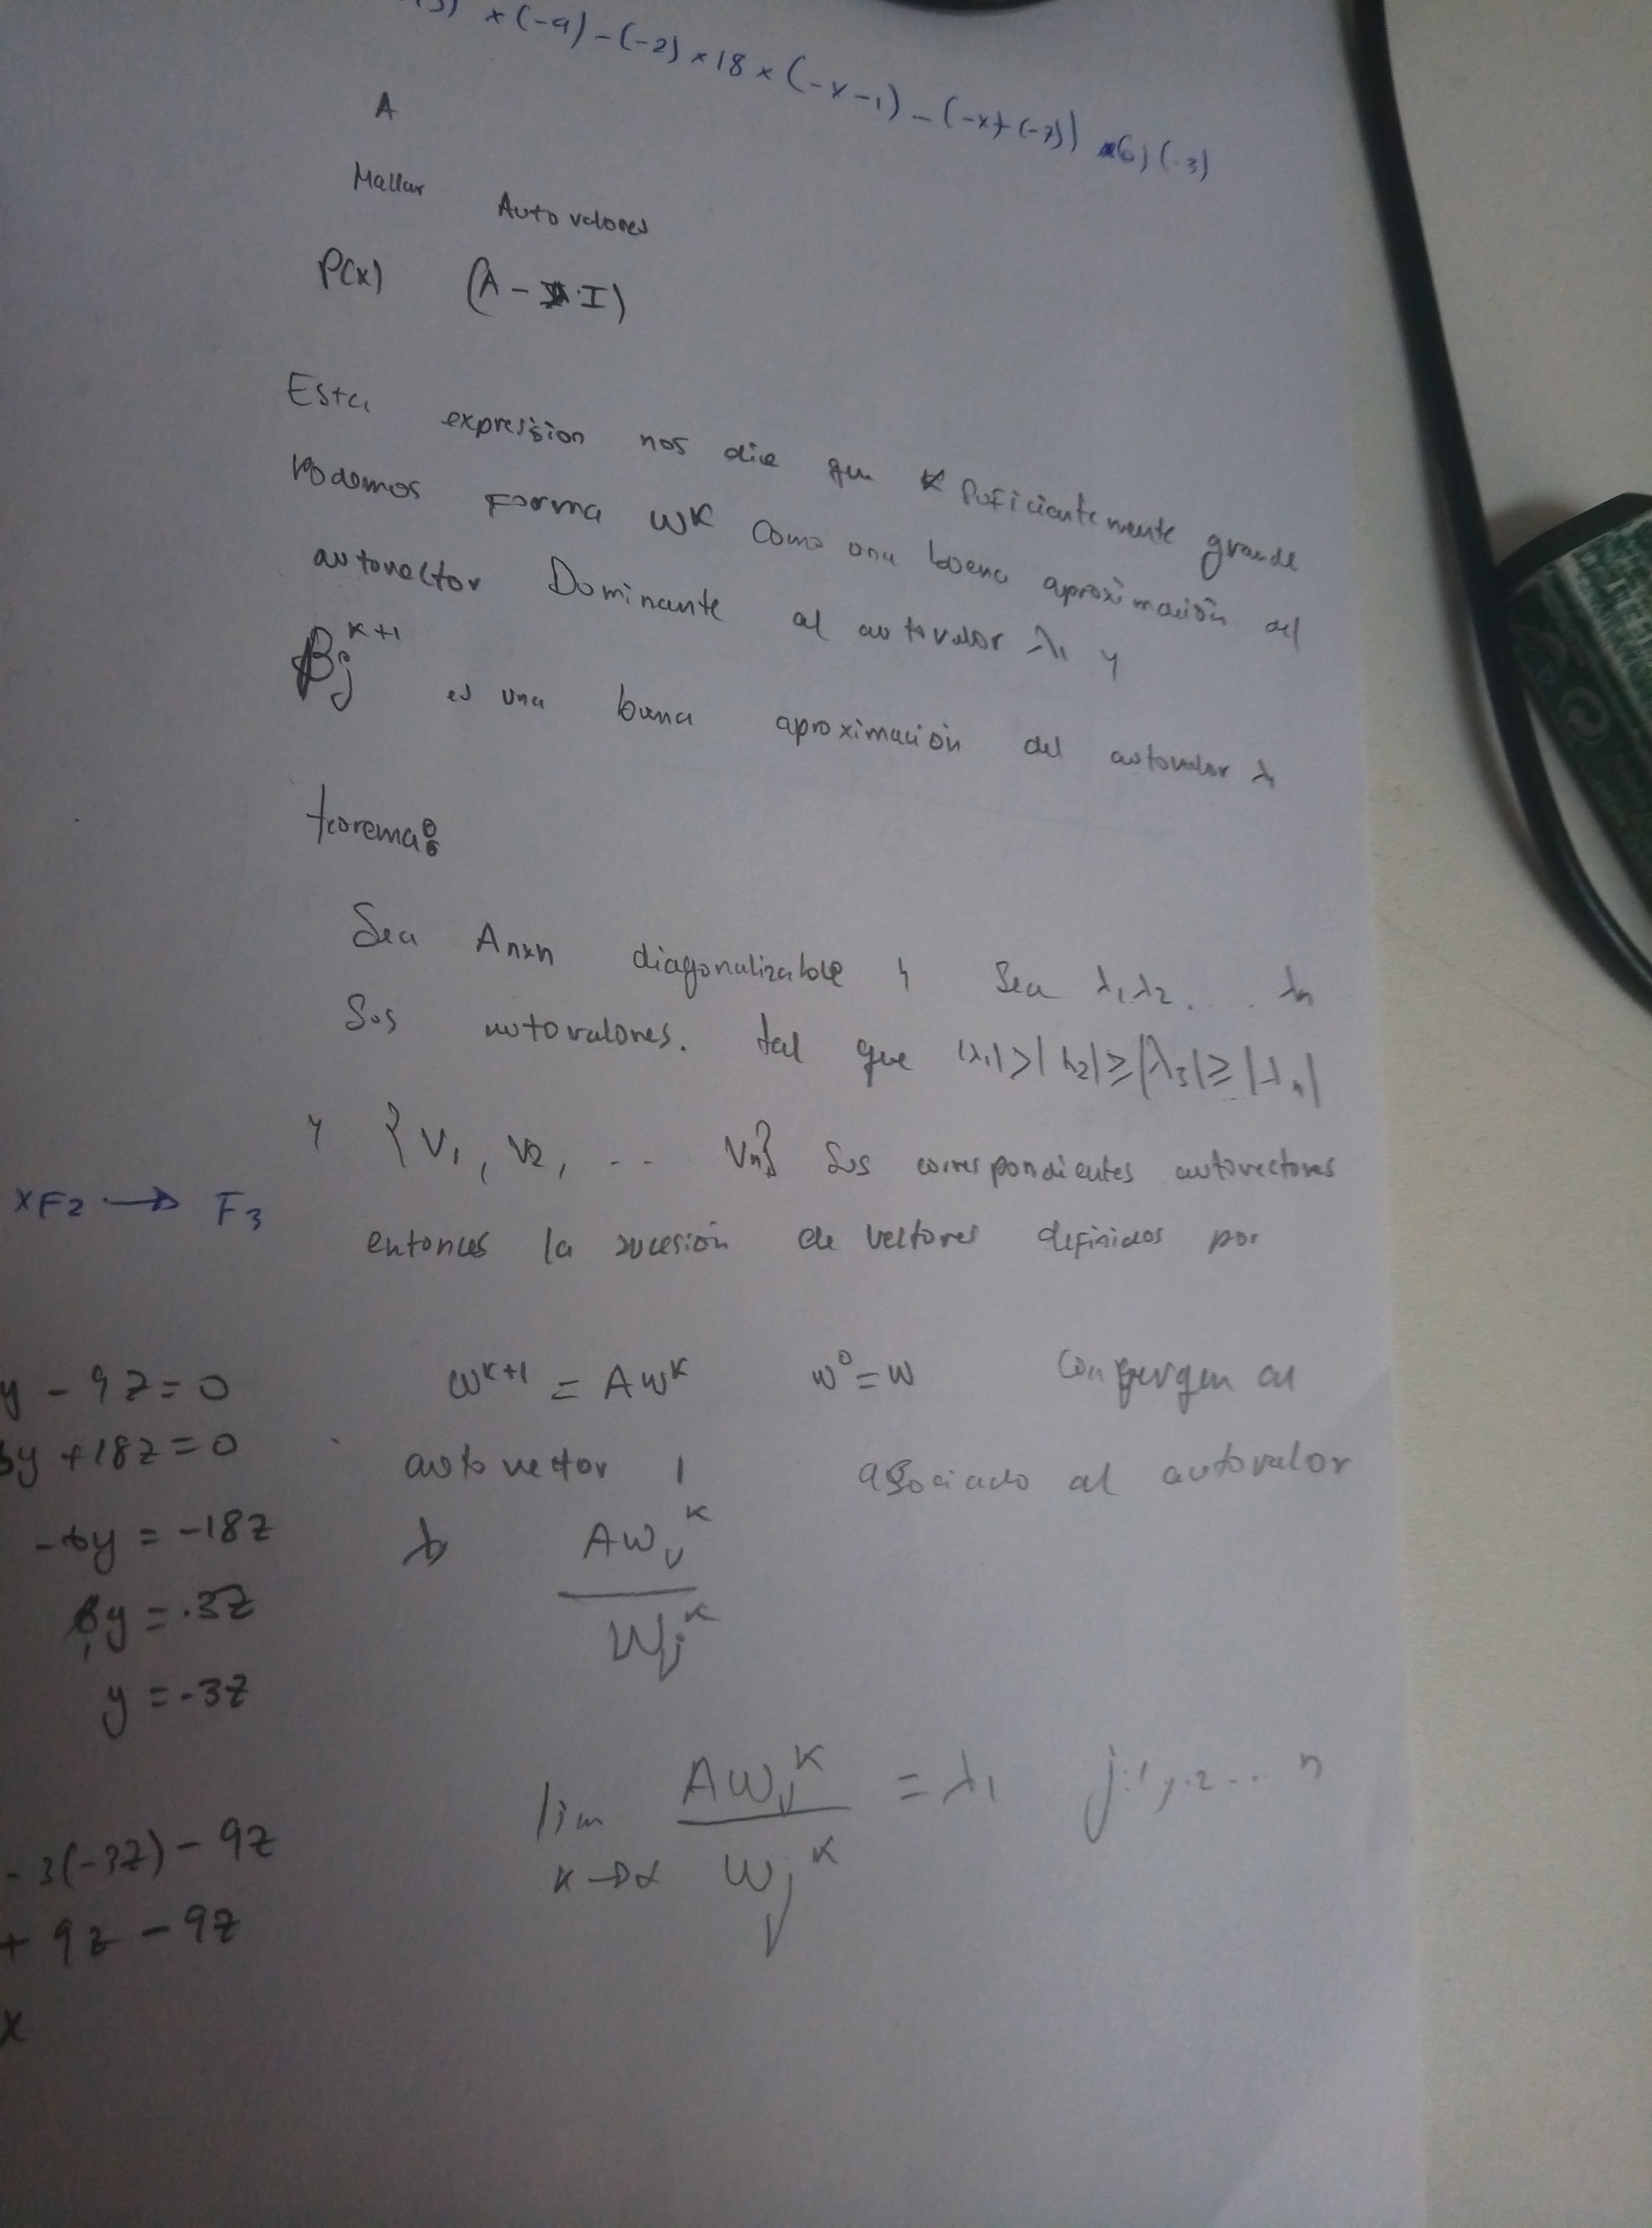 x(-9)-(-2)x18x(-x-1)-(-x+(-7)) 6)(-3)
A
Hallar Autovalores
P(x) (A-λ·I)
Esta expression nos dice que K suficientemente grande
Podemos forma W^K como ona buena aproximación del
autovector Dominante al autovalor λ1 y
βj^K+1 es una buena aproximación del autovalor λ1
teorema:
Sea Anxn diagonalizable y Sea λ1,λ2.... λn
Sus autovalores. tal que |λ1|>|λ2|≥|λ3|≥|λn|
y {V1, V2, .. Vn} Sus correspondientes autovectores
xF2 → F3
entonces la sucesión de vectores definidos por
y-9z=0
W^K+1 = AW^K w^0=w Convergen al
y+18z=0
autovector 1 asociado al autovalor
-6y=-18z
λ AWj^K / Wj^K
y=-3z
y=-3z
-3(-3z)-9z
lim K→∞ AWj^K / Wj^K = λ1 j:1,2... n
+9z-9z
x